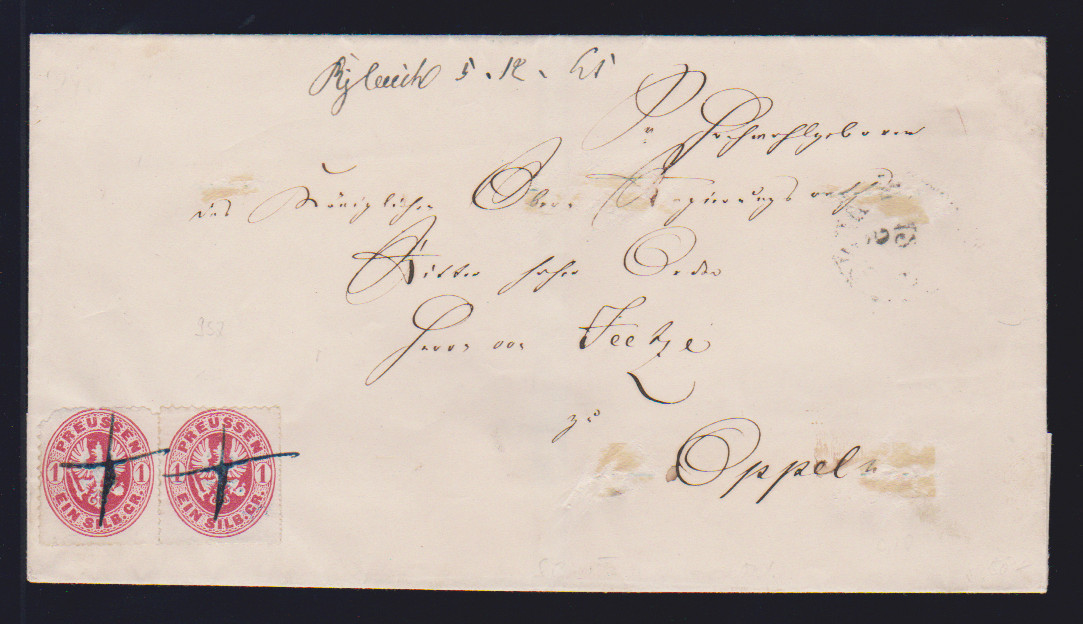 5 . 12 . 65
Sr. Hochwohlgeboren
des Königlichen Ober-Regierungsrath
Ritter hoher Orden
Herrn von Teetze
zu
Oppeln
12
2
357
PREUSSEN
1 1
EIN SILB. GR.
PREUSSEN
1 1
EIN SILB. GR.